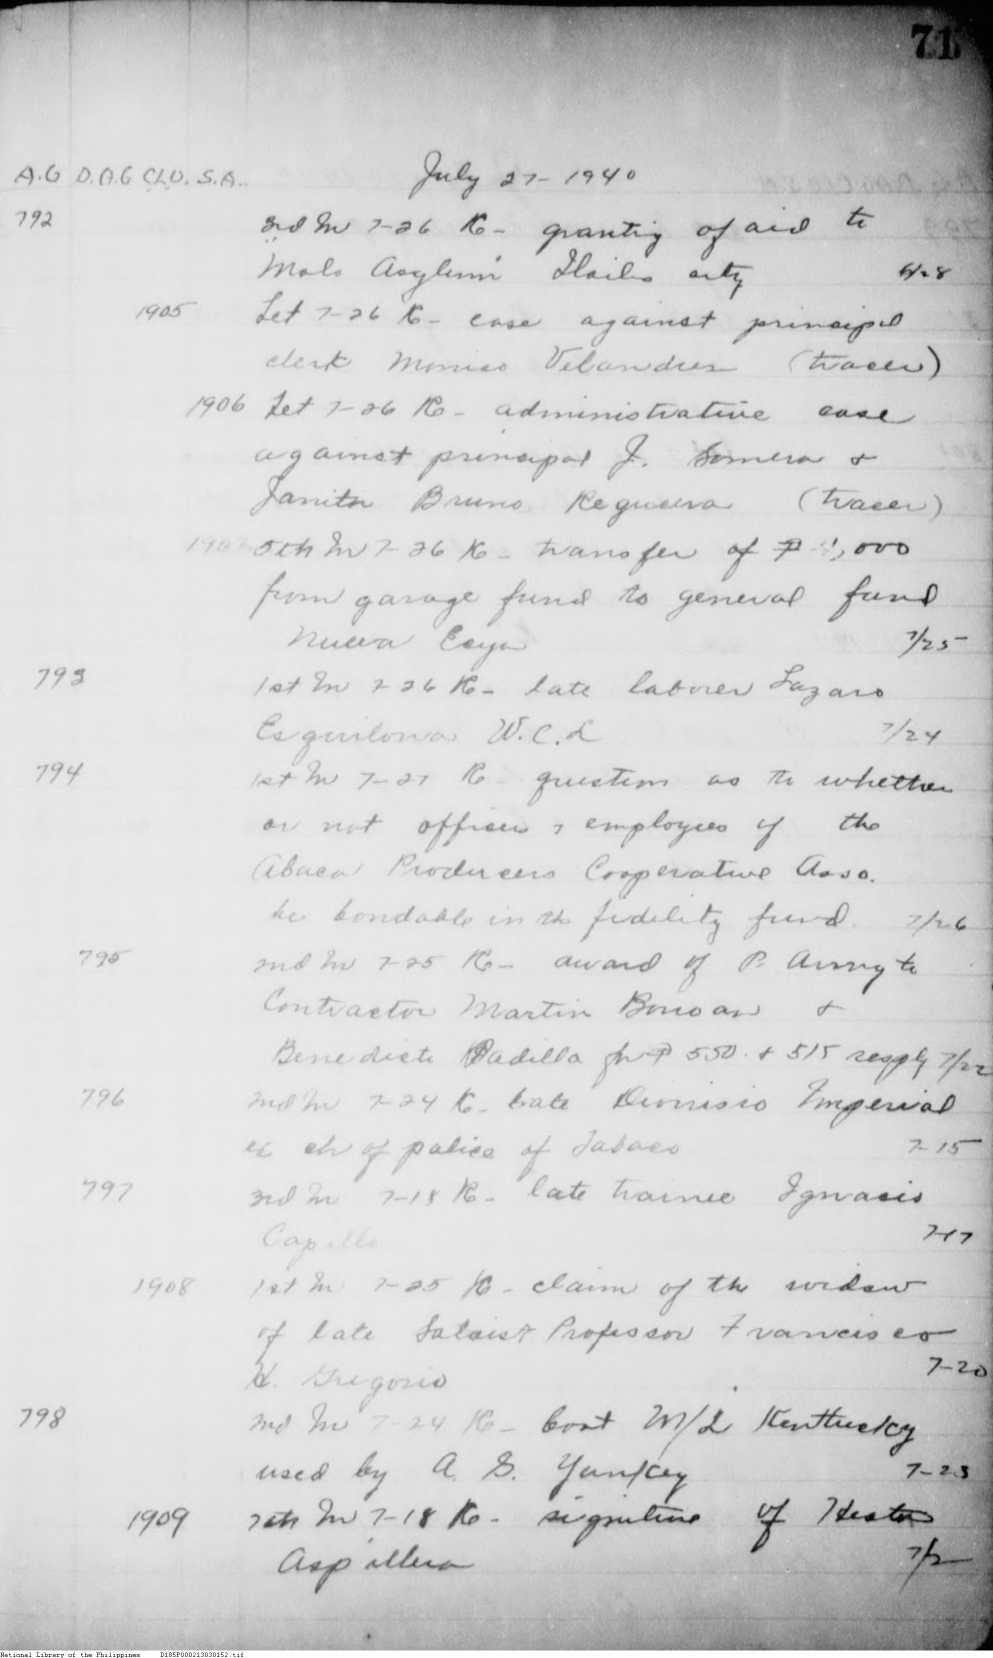 71
A.G D.A.G CLU. S.A. July 27-1940
792 3rd In 7-26 K- granting of aid to
Molo Asylum Iloilo city 6/28
1905 Let 7-26 K- case against principal
clerk (tracer)
1906 Let 7-26 K- administrative case
against principal J. Somera &
Janitor Bruno Reguera (tracer)
5th In 7-26 K- transfer of ₱ ,000
from garage fund to general fund
Nueva Ecija 7/25
793 1st In 7-26 K- late laborer Lazaro
W.C.L 7/24
794 1st In 7-27 K- question as to whether
or not officers & employees of the
Abaca Producers Cooperative Asso.
be bondable in the fidelity fund. 7/26
795 2nd In 7-25 K- award of P. Army to
Contractor Martin &
Benedicto Padilla for ₱ 550. & 515 resply 7/22
796 2nd In 7-24 K- late Dionisio Imperial
ex ch of police of Tabaco 7-15
797 3rd In 7-18 K- late trainee Ignacio
Capillo 7-17
1908 1st In 7-25 K- claim of the widow
of late Professor Francisco
H. Gregorio 7-20
798 2nd In 7-24 K- boat M/L Kenttucky
used by A. S. Yankey 7-23
1909 7th In 7-18 K- signature of
Aspillera 7/2
National Library of the Philippines D185P000213030152.tif